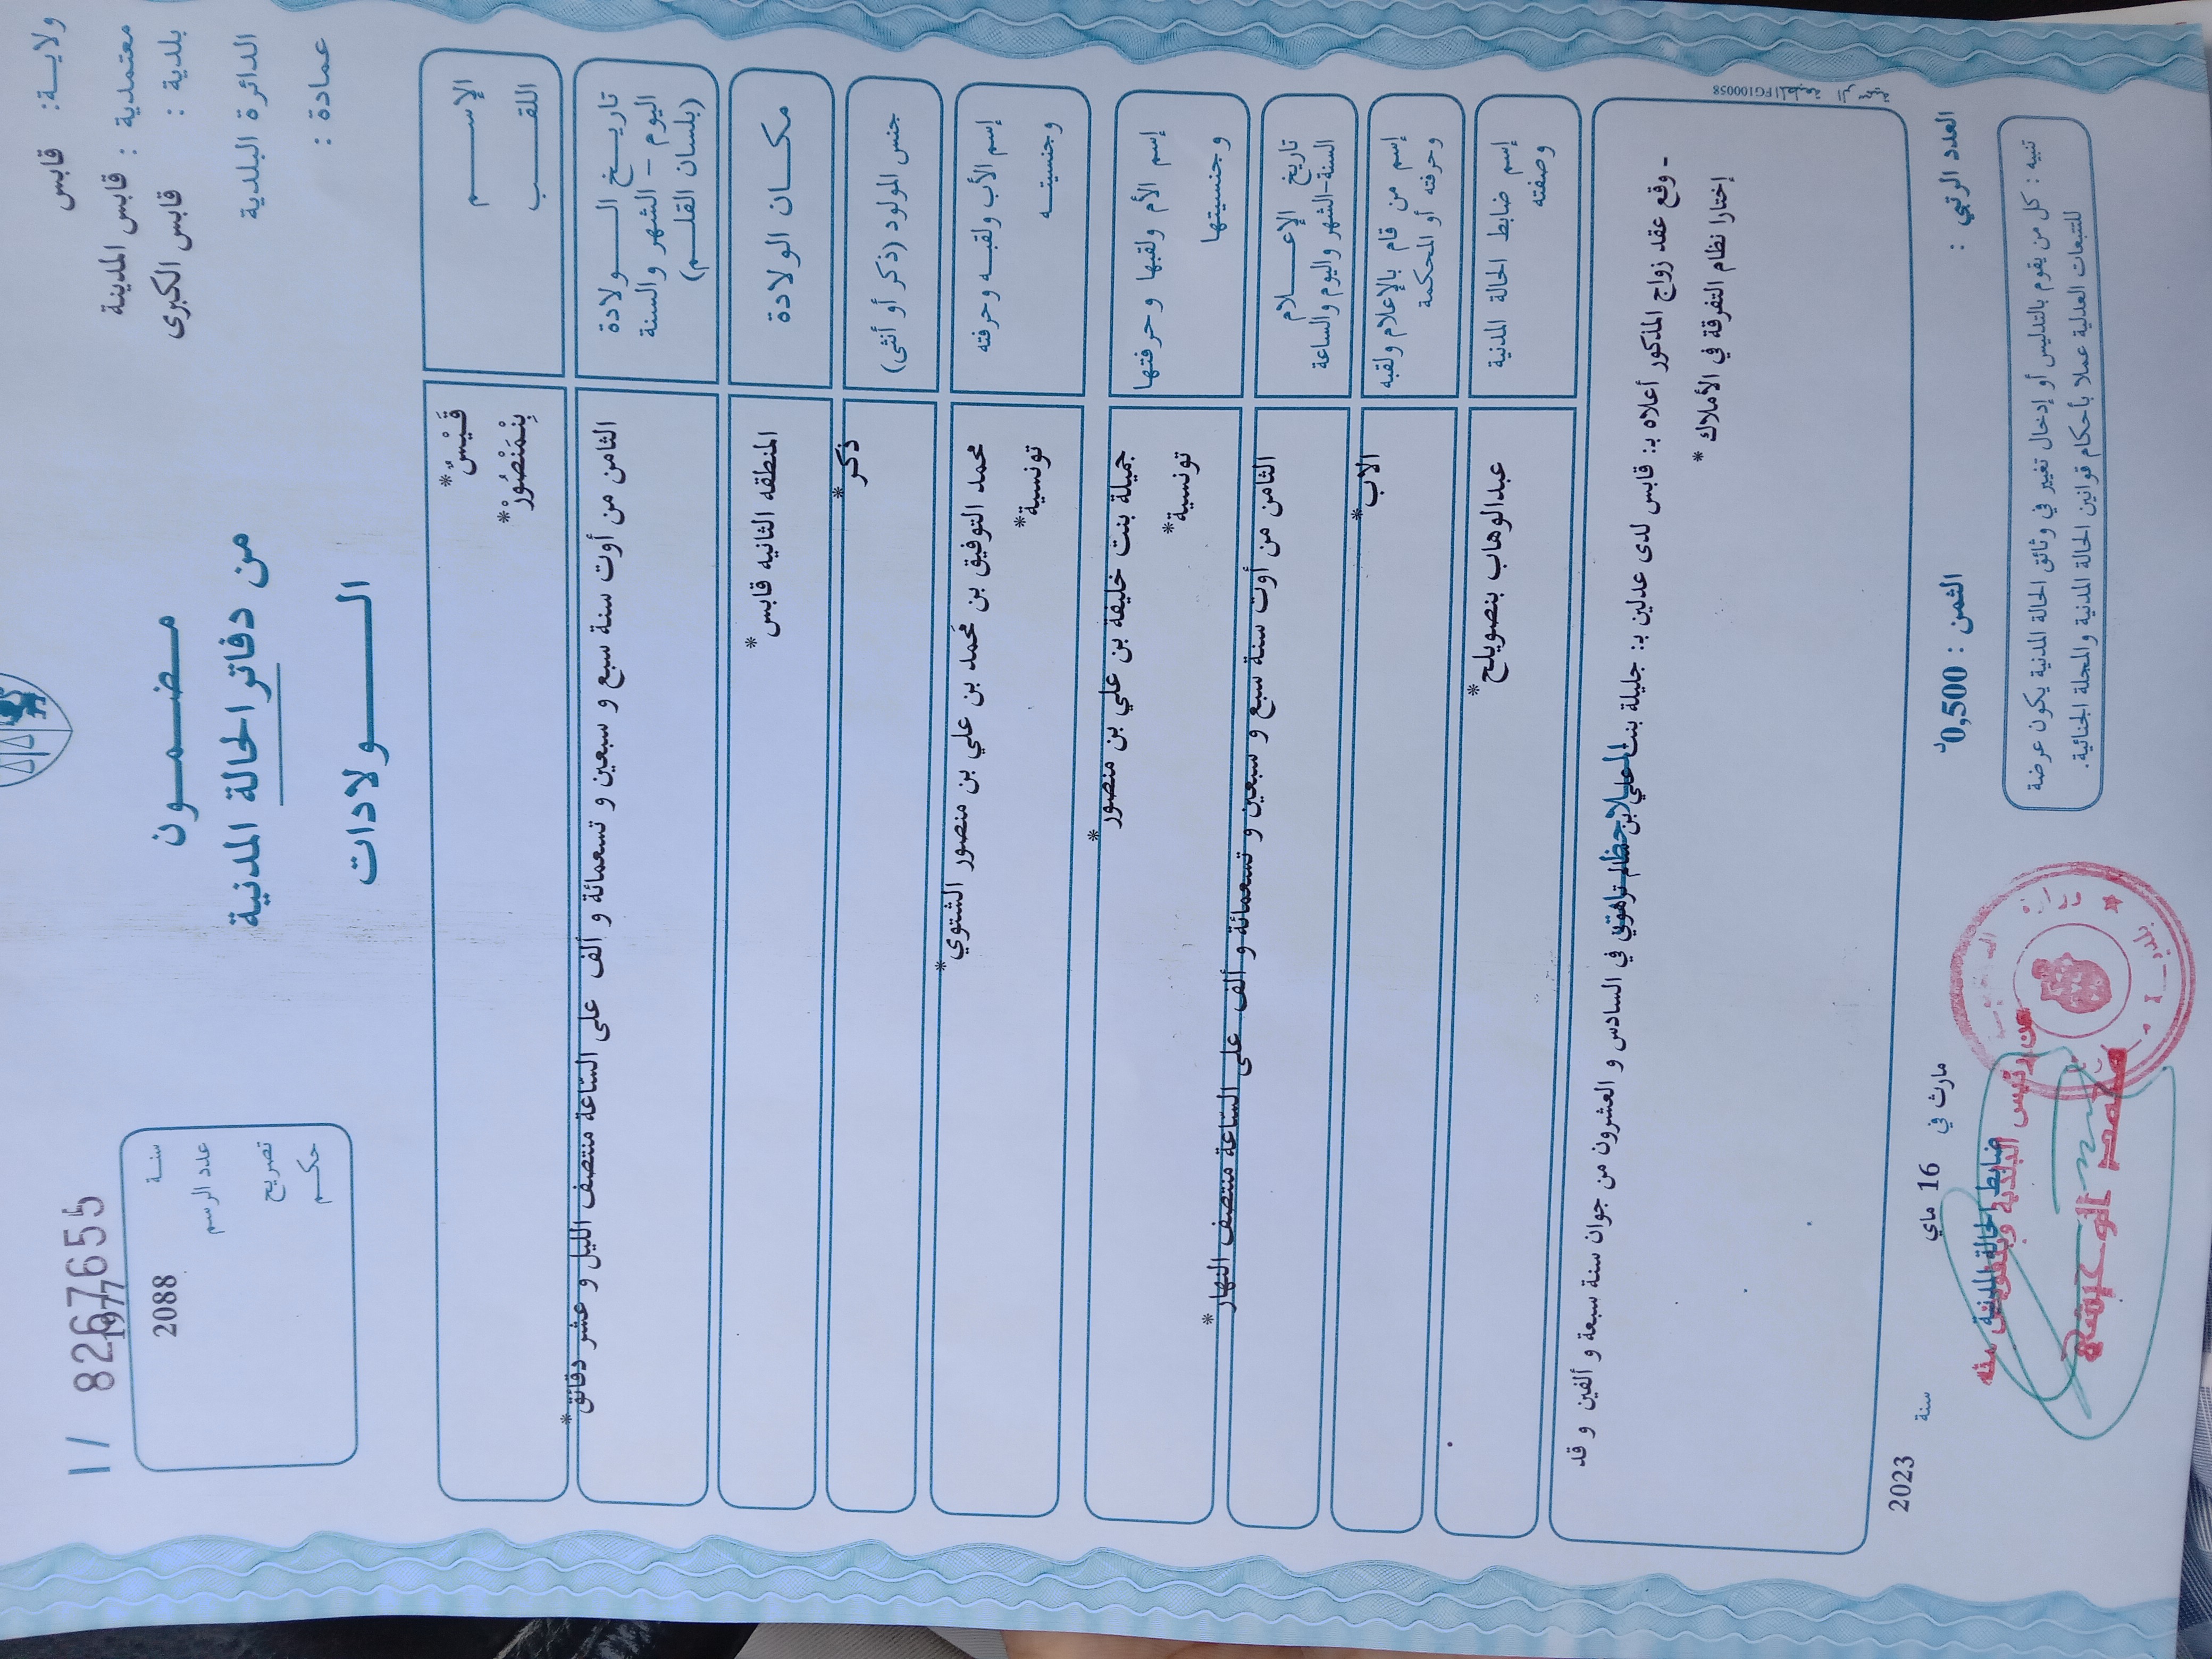 ولايـــة: قابس
معتمدية : قابس المدينة
بلدية : قابس الكبرى
الدائرة البلدية
عمادة :
مـــضـــمـــون
من دفاتر الحالة المدنية
الـــــــولادات
1/ 826765
سنـــة 1977
عدد الرسم 2088
تصريح
حكـــم
الإســـــم قَيْسٌ*
اللقـــــب بِنْمَنْصُوْرْ*
تاريـــخ الـــــولادة
اليوم – الشهر والسنة
(بلسان القلـــم)
الثامن من أوت سنة سبع و سبعين و تسعمائة و ألف على الساعة منتصف الليل و عشر دقائق*
مكـــان الولادة المنطقه الثانيه قابس*
جنس المولود (ذكر أو أنثى) ذكر*
إسم الأب ولقبـــه وحرفته محمد التوفيق بن محَمد بن علي بن منصور الشتوي*
وجنسيتـــه تونسية*
إسم الأم ولقبها وحرفتها جميلة بنت خليفة بن علي بن منصور*
وجنسيتها تونسية*
تاريخ الإعـــــلام
السنة-الشهر واليوم والساعة
الثامن من أوت سنة سبع و سبعين و تسعمائة و ألف على الساعة منتصف النهار*
إسم من قام بالإعلام ولقبه
وحرفته أو المحكمة
الاب*
إسم ضابط الحالة المدنية
وصفته
عبدالوهاب بنصويلح*
- وقع عقد زواج المذكور أعلاه بـ: قابس لدى عدلين بـ: جليلة بنت علي بن في السادس و العشرون من جوان سنة سبعة و ألفين و قد
إختارا نظام التفرقة في الأملاك *
FG100058
العدد الرتبي :
الثمن : 0,500د
مارث في 16 ماي سنة 2023
تنبيه : كل من يقوم بالتدليس أو إدخال تغيير في وثائق الحالة المدنية يكون عرضة
للتتبعات العدلية عملا بأحكام قوانين الحالة المدنية والمجلة الجنائية.
ضابط الحالة المدنية
عن رئيس البلدية وبتفويض منه